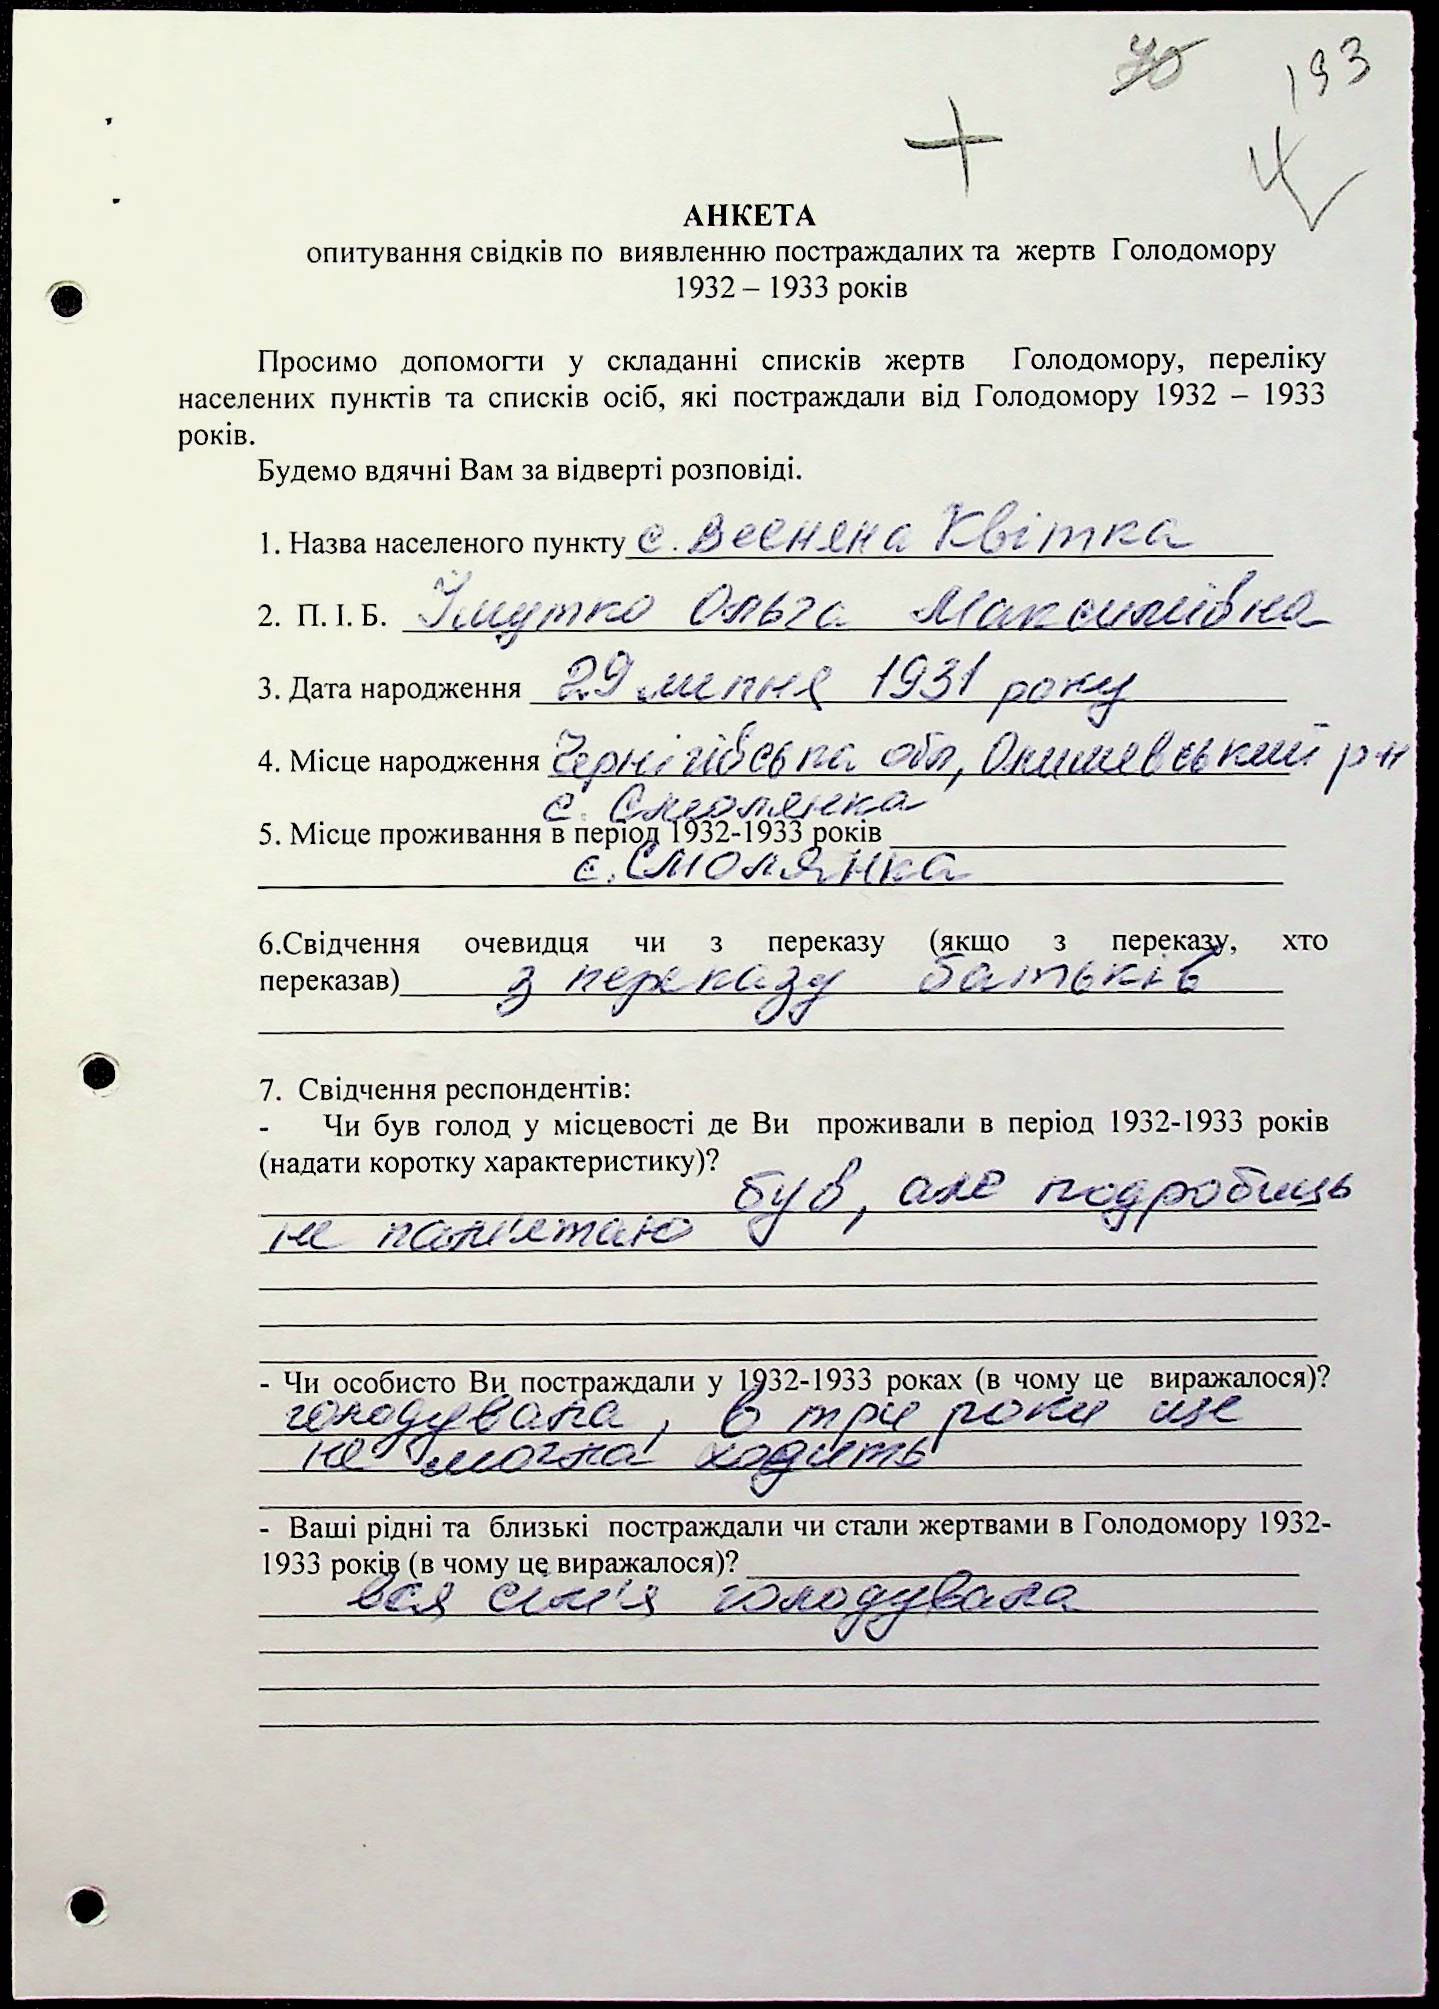 193
АНКЕТА
опитування свідків по виявленню постраждалих та жертв Голодомору
1932 – 1933 років
Просимо допомогти у складанні списків жертв Голодомору, переліку
населених пунктів та списків осіб, які постраждали від Голодомору 1932 – 1933
років.
Будемо вдячні Вам за відверті розповіді.
1. Назва населеного пункту с. Весняна Квітка
2. П. І. Б. Ольга Максимівна
3. Дата народження 29 липня 1931 року
4. Місце народження Чернігівська обл, р-н
с. Смолянка
5. Місце проживання в період 1932-1933 років
с. Смолянка
6.Свідчення очевидця чи з переказу (якщо з переказу, хто
переказав) з переказу батьків
7. Свідчення респондентів:
- Чи був голод у місцевості де Ви проживали в період 1932-1933 років
(надати коротку характеристику)?
був, але подробиць
не пам'ятаю
- Чи особисто Ви постраждали у 1932-1933 роках (в чому це виражалося)?
голодувала, в три роки ще
не могла ходить
- Ваші рідні та близькі постраждали чи стали жертвами в Голодомору 1932-
1933 років (в чому це виражалося)?
вся сім'я голодувала